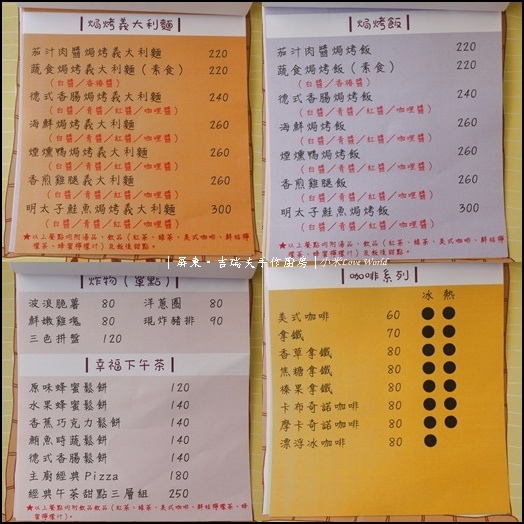 焗烤義大利麵
茄汁肉醬焗烤義大利麵 220
蔬食焗烤義大利麵(素食) 220
(白醬/香椿醬)
德式香腸焗烤義大利麵 240
(白醬/青醬/紅醬/咖哩醬)
海鮮焗烤義大利麵 260
(白醬/青醬/紅醬/咖哩醬)
煙燻鴨焗烤義大利麵 260
(白醬/青醬/紅醬/咖哩醬)
香煎雞腿義大利麵 260
(白醬/青醬/紅醬/咖哩醬)
明太子鮭魚焗烤義大利麵 300
(白醬/青醬/紅醬/咖哩醬)
★以上餐點均附湯品、飲品(紅茶、綠茶、美式咖啡、鮮桔檸
檬茶、蜂蜜檸檬汁)及飯後甜點。
焗烤飯
茄汁肉醬焗烤飯 220
蔬食焗烤飯(素食) 220
(白醬/香椿醬)
德式香腸焗烤飯 240
(白醬/青醬/紅醬/咖哩醬)
海鮮焗烤飯 260
(白醬/青醬/紅醬/咖哩醬)
煙燻鴨焗烤飯 260
(白醬/青醬/紅醬/咖哩醬)
香煎雞腿飯 260
(白醬/青醬/紅醬/咖哩醬)
明太子鮭魚焗烤飯 300
(白醬/青醬/紅醬/咖哩醬)
★以上餐點均附湯品、飲品(紅茶、綠茶、美式咖啡、鮮桔檸
檬茶、蜂蜜檸檬汁)及飯後甜點。
|屏東。吉瑞夫手作廚房|小米Love World
炸物(單點)
波浪脆薯 80 洋蔥圈 80
鮮嫩雞塊 80 現炸豬排 90
三色拼盤 120
幸福下午茶
原味蜂蜜鬆餅 120
水果蜂蜜鬆餅 140
香蕉巧克力鬆餅 140
鮪魚時蔬鬆餅 140
德式香腸鬆餅 140
主廚經典Pizza 180
經典午茶甜點三層組 250
★以上餐點均附飲品飲品(紅茶、綠茶、美式咖啡、鮮桔檸檬茶、蜂蜜
檸檬汁)。
咖啡系列
冰 熱
美式咖啡 60 ● ●
拿鐵 70 ● ●
香草拿鐵 80 ● ●
焦糖拿鐵 80 ● ●
榛果拿鐵 80 ● ●
卡布奇諾咖啡 80 ● ●
摩卡奇諾咖啡 80 ● ●
漂浮冰咖啡 80 ●